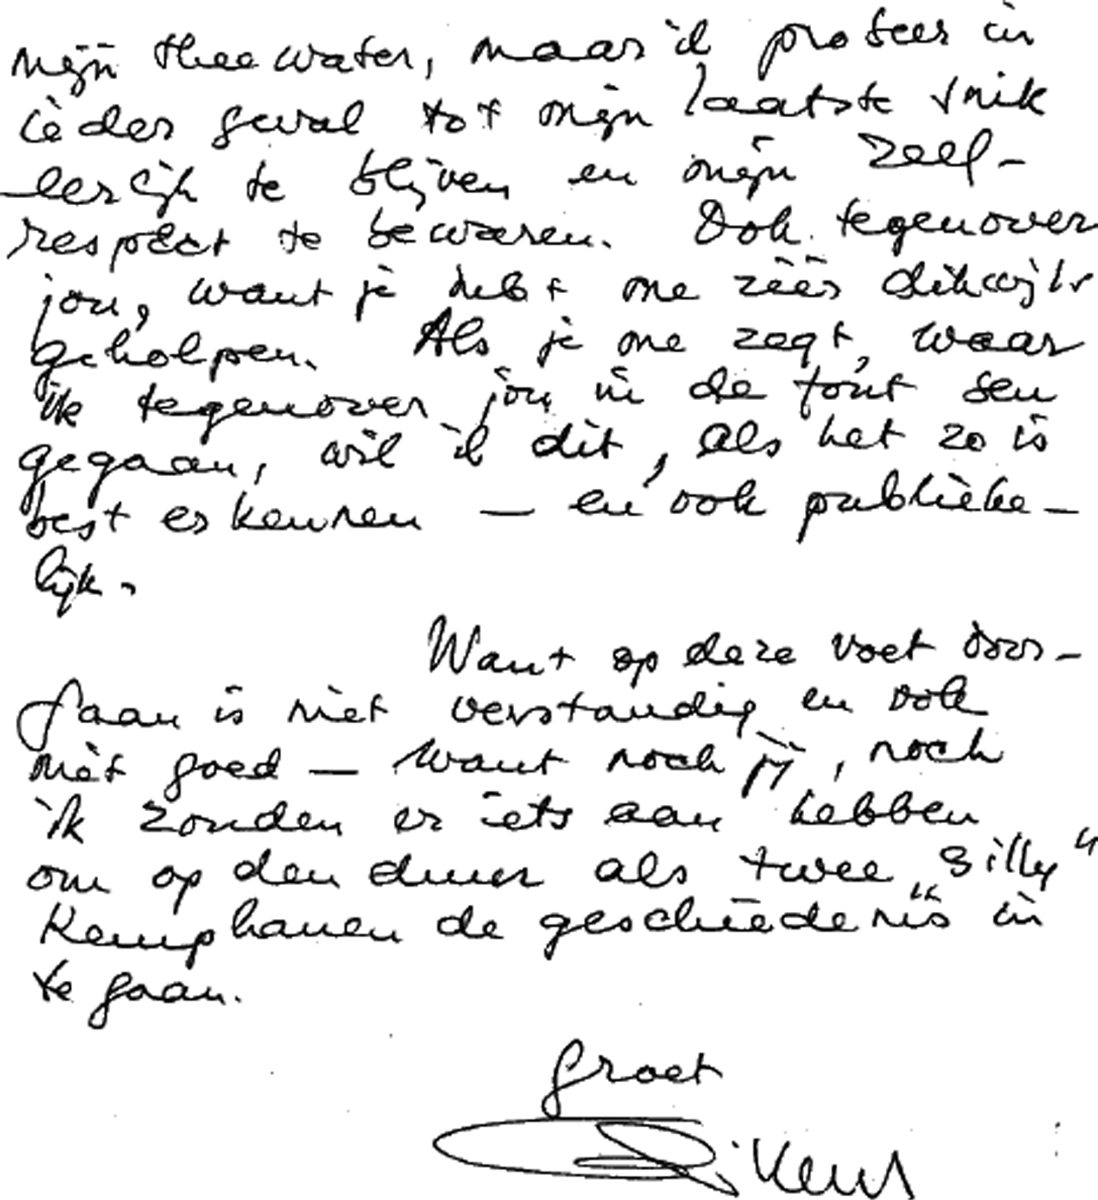 mijn theewater, maar ik probeer in
ieder geval tot mijn laatste snik
eerlijk te blijven en mijn zelf-
respect te bewaren. Ook tegenover
jou, want je hebt me zéér dikwijls
geholpen. Als je me zegt, waar
ik tegenover jou in de fout ben
gegaan, wil ik dit, als het zo is
best erkennen — en ook publieke-
lijk.
Want op deze voet door-
gaan is niet verstandig en ook
niet goed — want noch jij, noch
ik zouden er iets aan hebben
om op den duur als twee „silly"
kemphanen de geschiedenis in
te gaan.
Groet